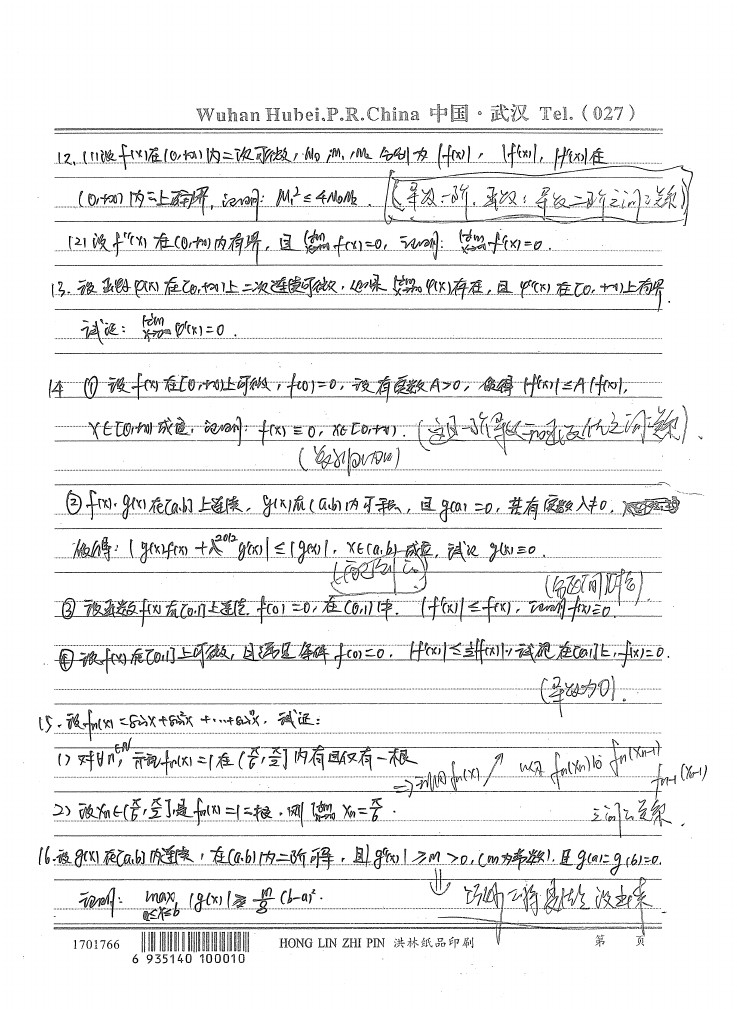 Wuhan Hubei.P.R.China 中国·武汉 Tel.(027)
12. (1) 设f(x)在(0,+∞)内二次可微, M₀, M₁, M₂ 分别为|f(x)|, |f'(x)|, |f''(x)|在
(0,+∞)内之上确界, 证明: M₁² ≤ 4M₀M₂. (导数一阶, 函数, 导数二阶之间之关系)
(2) 设f''(x)在(0,+∞)内有界, 且 lim x→∞ f(x)=0, 证明: lim x→∞ f'(x)=0.
13. 设函数φ(x)在[0,+∞)上二次连续可微, 如果 lim x→+∞ φ(x)存在, 且φ''(x)在[0,+∞)上有界
试证: lim x→∞ φ'(x)=0.
14 ① 设f(x)在[0,+∞)上可微, f(0)=0, 设有实数A>0, 使得|f'(x)|≤A|f(x)|,
x∈[0,+∞)成立, 证明: f(x)≡0, x∈[0,+∞). (这是一阶导数和函数什么之间之关系).
② f(x), g(x)在[a,b]上连续, g(x)在(a,b)内可导, 且g(a)=0, 若有实数λ≠0.
使得: |g(x)f(x)+λ²⁰¹² g'(x)|≤|g(x)|, x∈(a,b)成立, 试证g(x)≡0.
③ 设函数f(x)在[0,1]上连续, f(0)=0, 在(0,1)中, |f'(x)|≤f(x), 证明f(x)≡0.
④ 设f(x)在[0,1]上可微, 且满足条件f(0)=0, |f'(x)|≤½|f(x)|, 试证在[0,1]上, f(x)=0.
(导数为0).
15. 设fn(x)=sinx+sin²x+…+sinⁿx, 试证:
1) 对∀n∈N, 方程fn(x)=1在(π/6, π/2]内有且仅有一根
⇒利用fn(x) fn(xn)与fn(xn-1)
fn-1(xn-1)
2) 设xn∈(π/6, π/2]是fn(x)=1之根, 则 lim n→∞ xn=π/6. 之间之关系.
16. 设g(x)在[a,b]内连续, 在(a,b)内二阶可导, 且|g''(x)|≥m>0, (m为常数). 且g(a)=g(b)=0.
证明: max a≤x≤b |g(x)|≥m/8 (b-a)².
1701766 HONG LIN ZHI PIN 洪林紙品印刷 第 页
6 935140 100010